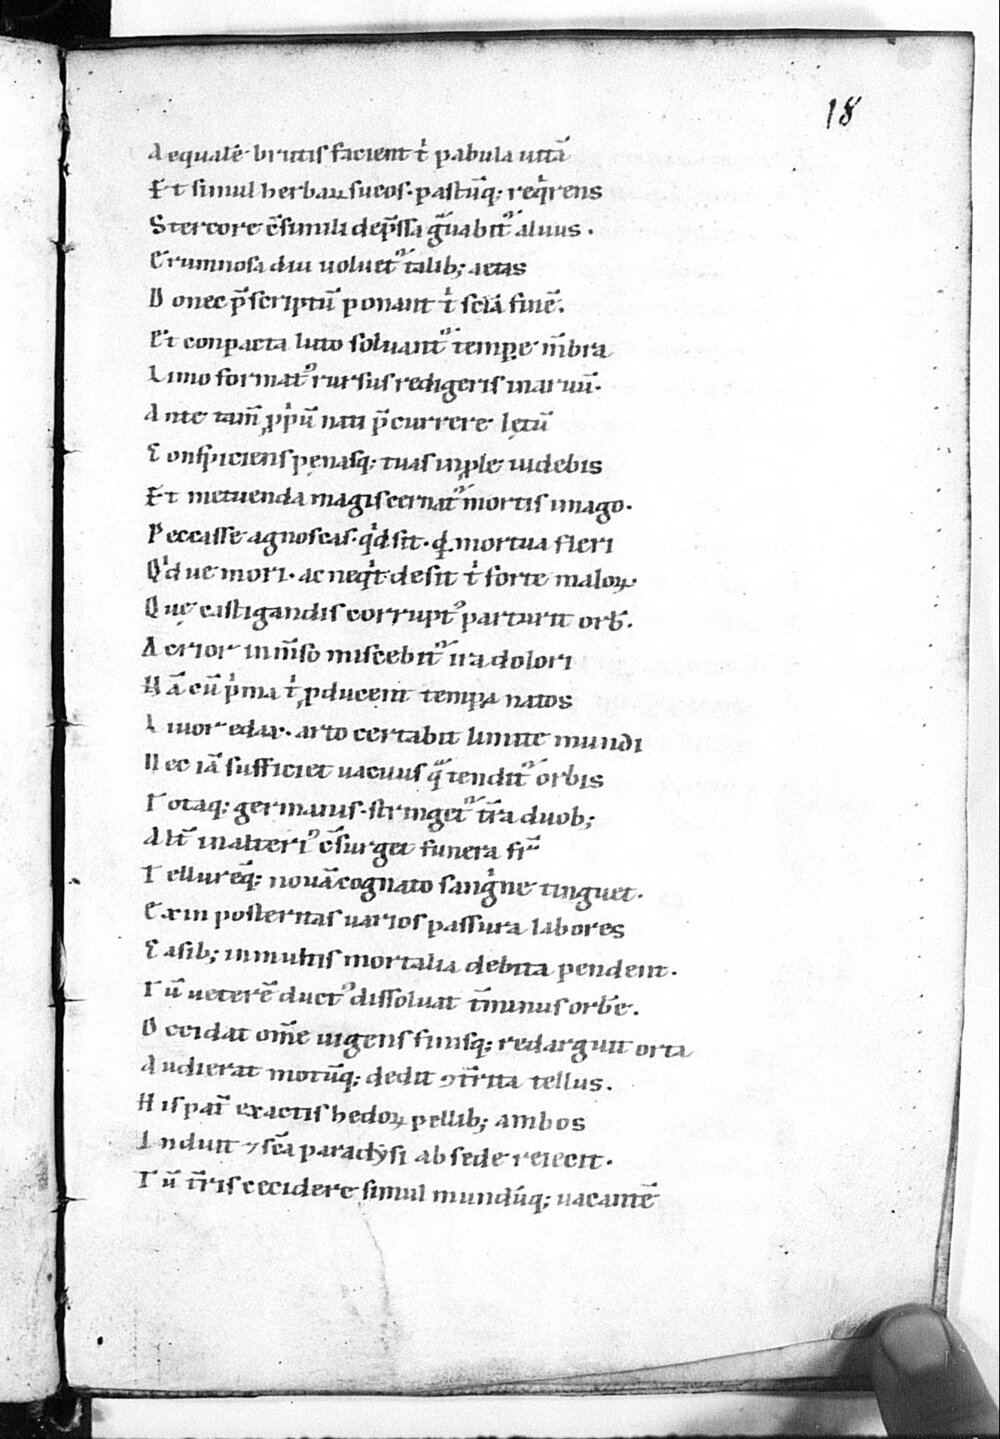 18
Aequalē brutis facient t̍ pabula uitā
Et simul herbaꝝ sucos· pastūq; req̍rens
Stercore c̄simili dep̄ssa g̃uabit᷑ aluus·
Erumnosa diu uoluet᷑ talib; aetas
Donec p̄scriptū ponant t̍ sc̄la finē.
Et conpacta luto soluant᷑ tempꝑe m̄bra
Limo format᷒ rursus redigeris in aruū·
Ante tam̄ ꝓp̍ū nati p̄currere lętū
Conspiciens penasq; tuas in ꝓle uidebis
Et metuenda magis cernat᷑ mortis imago·
Peccasse agnoscas· q̍d sit· ꝙ mortua fleri
Q̍d ue mori· ac neq̍t desit t̍ forte maloꝝ·
Quę castigandis corrupt᷒ parturit orb̄·
Acrior inm̄so miscebit᷑ ira dolori
Nā cū p̍ma t̍ ꝓducent tempꝑa natos
Liuor edax· arto certabit limite mundi
Nec iā sufficiet uacuus q̃ tendit᷑ orbis
Totaq; germanis· stringet᷑ t̄ra duob;
Alt̄ in alteri᷒ c̄surget funera fr̄
Tellurēq; nouā cognato sang̍ne tinguet·
Exin posteritas uarios passura labores
Casib; in multis mortalia debita pendent·
Tū ueterē duct᷒ dissoluat t̄minus orbē·
Occidat om̄e uigens finisq; redarguit orta
Audierat motūq; dedit ⁊ t̄rita tellus·
His pat̄ exactis hedoꝝ pellib; ambos
Induit ⁊ sc̄a paradẏsi ab sede reiecit·
Tū t̄ris cecidere simul mundūq; uacantē